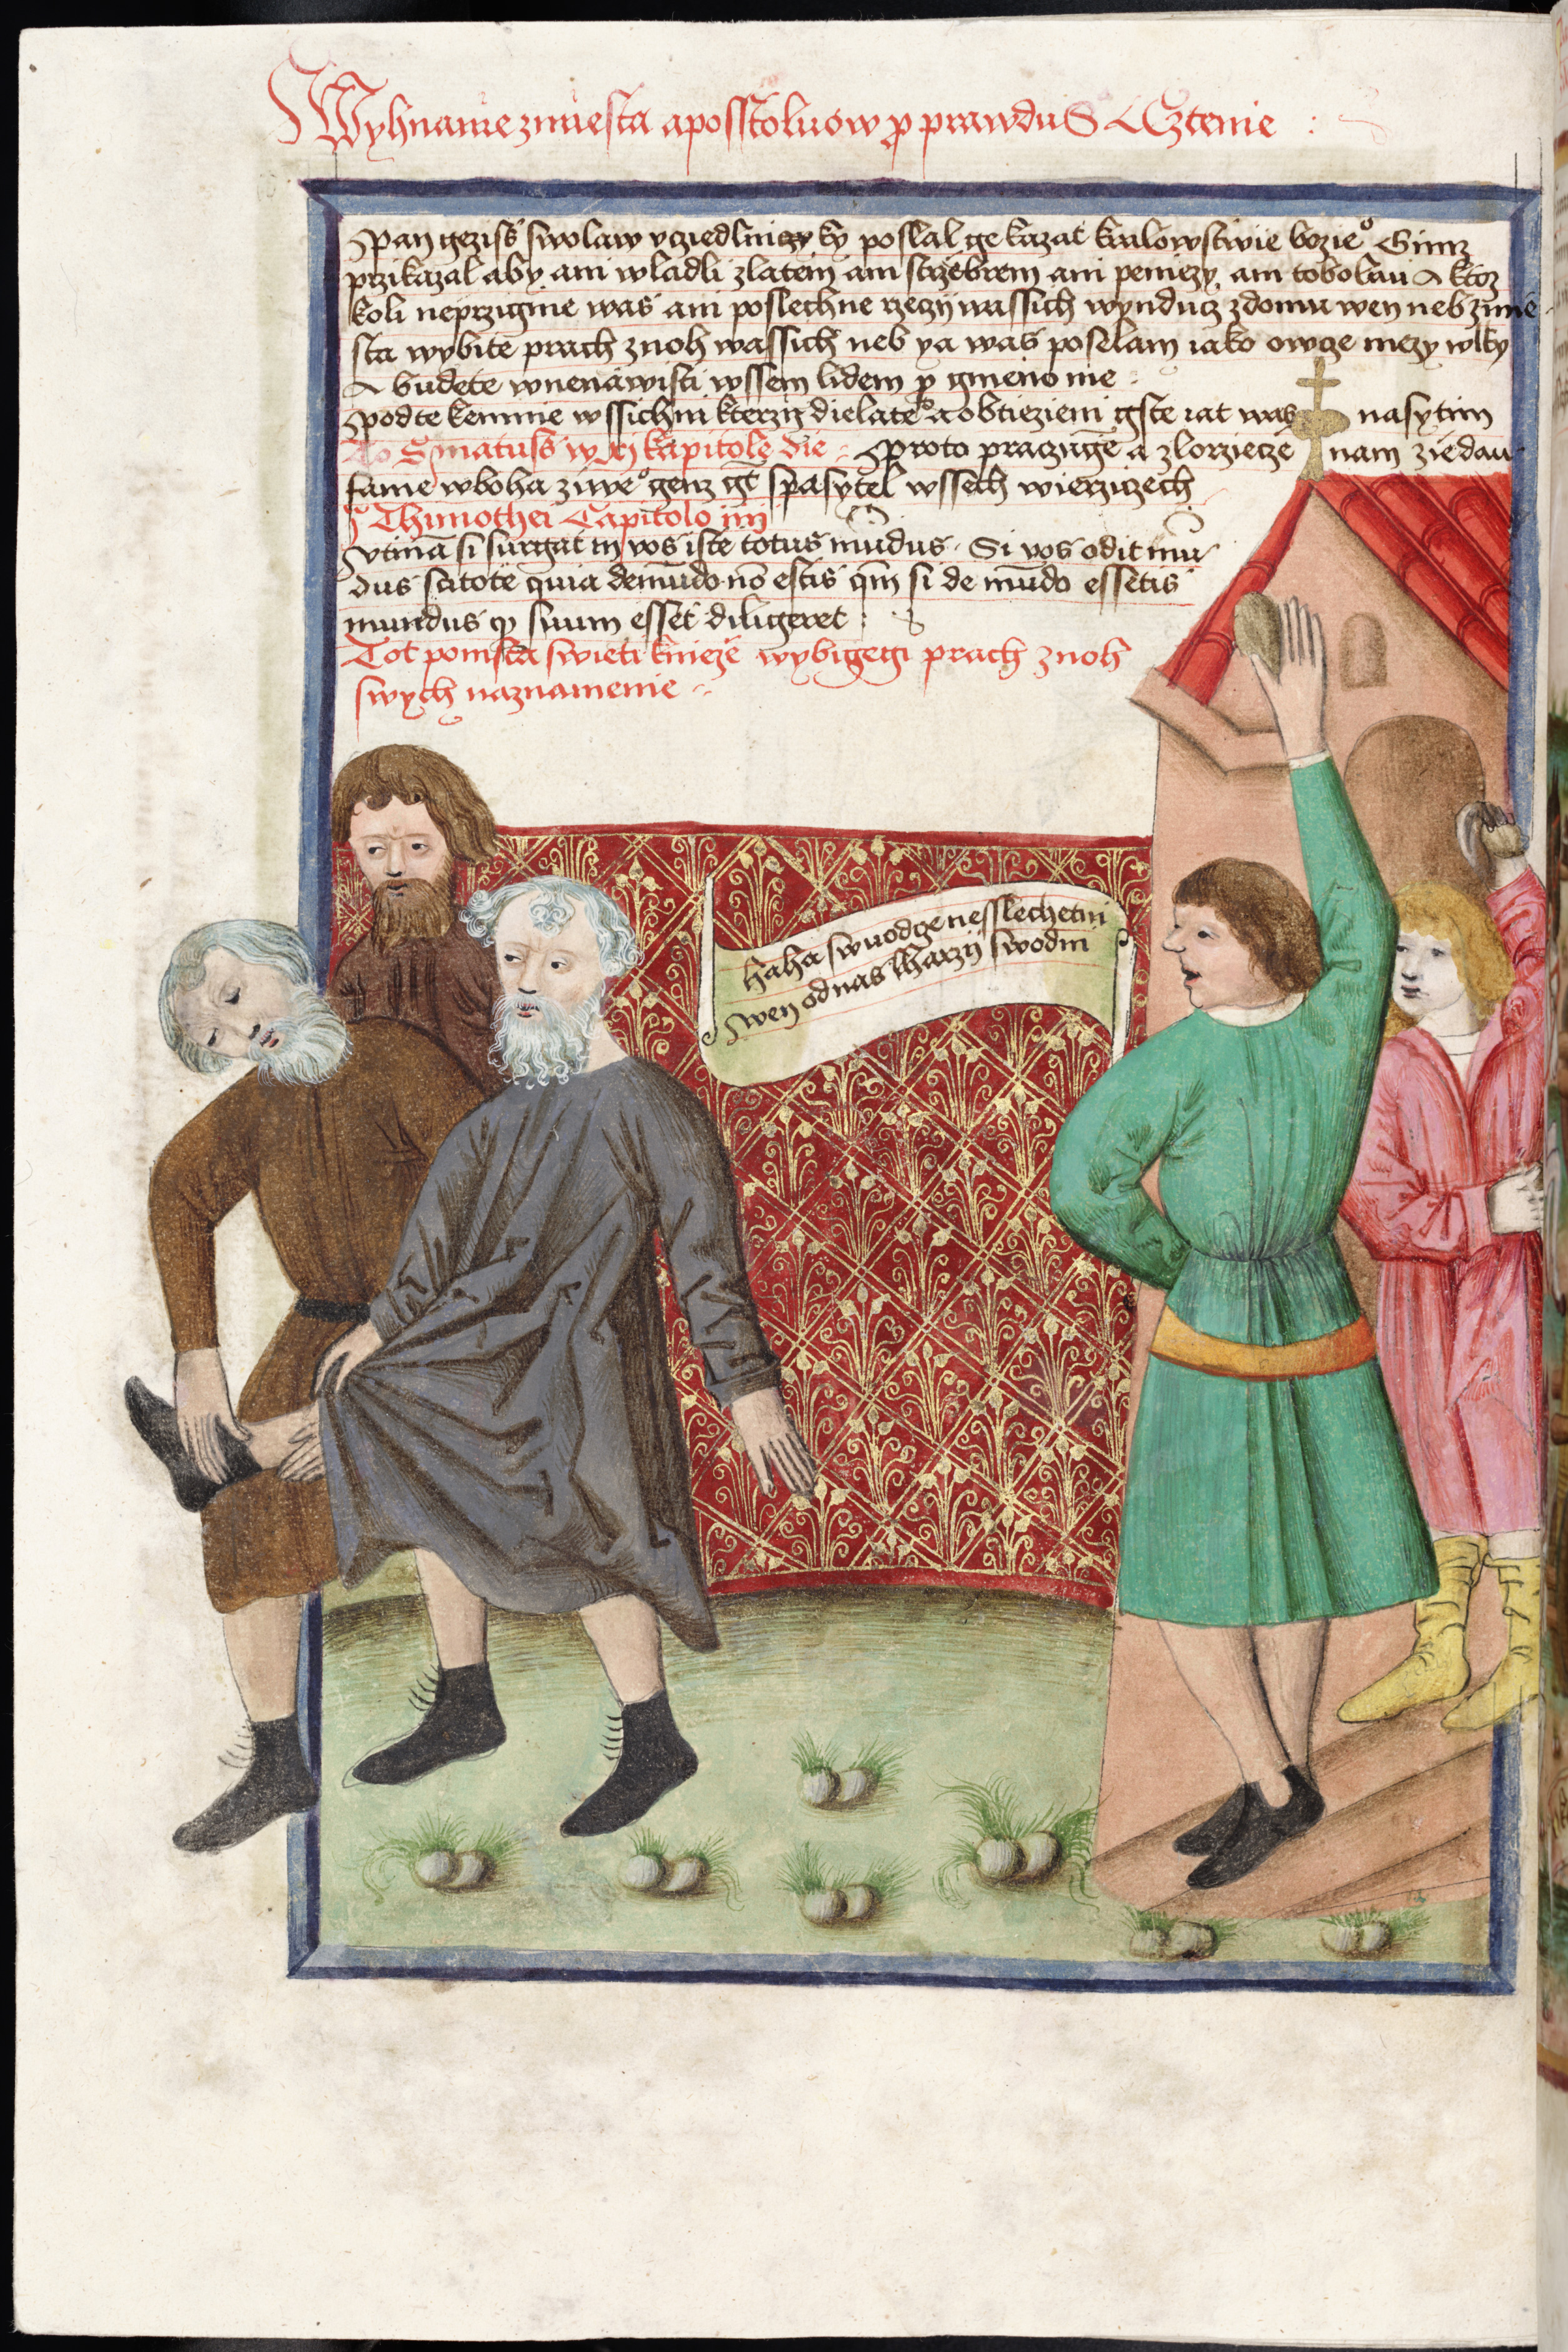 Wyhnanie zmiesta aposstoluow ꝓ prawdu S Cztenie :
Pan geziss swolaw vcziedlniczky poslal ge kazat kralowstwie bozieº Gimz
przikazal aby ani wladli zlatem ani strzebrem ani peniezy ani tobolau A ktoz
koli neprzigme was ani poslechne rzeczy wassich wynducz zdomu wen neb zmie
sta wybite prach znoh wassich neb ya was poselam iako owcze mezy wlky
A budete wnenawisti wssem lidem ꝓ gmeno me :
Podte kemnie wssichni kterziz dielate a obtiezieni gste iat was nasytim
To S matuss w xi kapitole die : Proto pracugē a zlorziecze nam ziedau
fame wboha ziweº genz gt̄ spasytel wssech wierziczech
j Thimothei Capitolo iiij
Vtinā si surgat in vos iste totus mūdus . Si vos odit mū
dus scitote quia de mūdo nō estis qm̄ si de mūdo essetis
mundus qꝫ suum esset diligeret :
Tot pomsta swieti knieze wybigegi prach znoh
swych naznamenie :
haha swuodge nesslechetni
wen odnas lharzy swodni